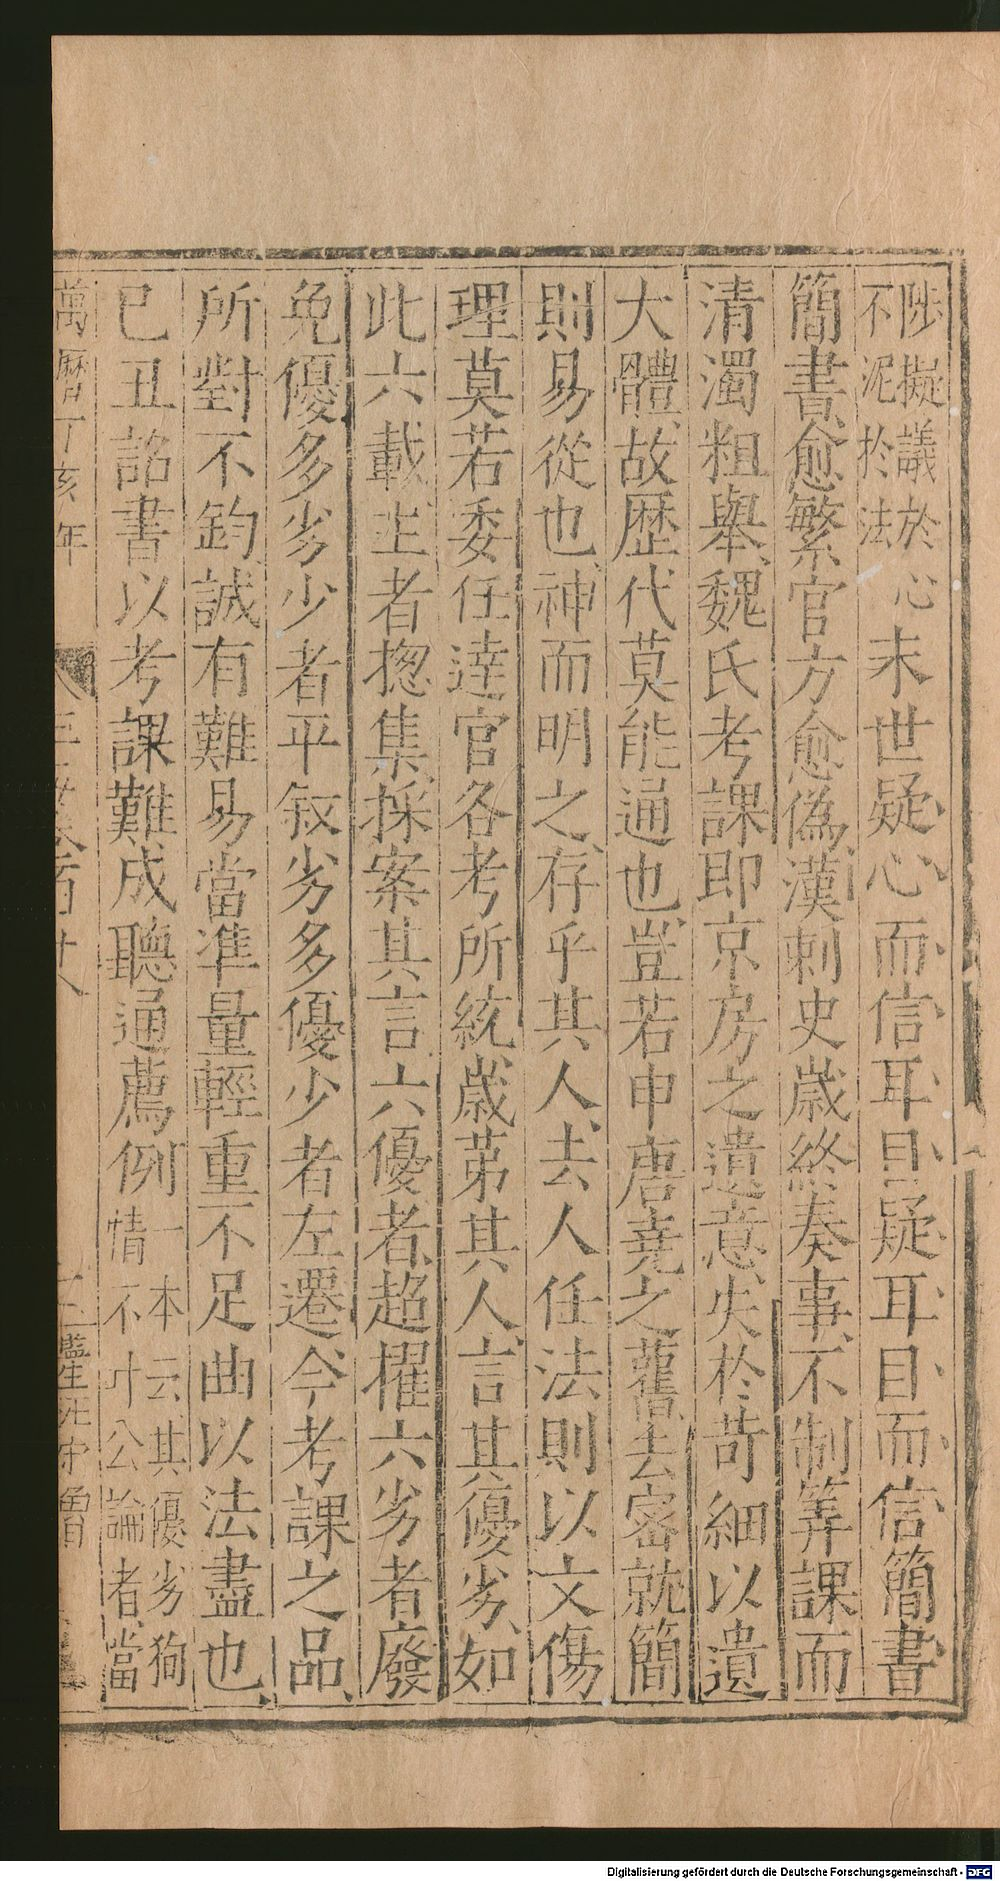 陟擬議於心
不泥於法末世疑心而信耳目疑耳目而信簡書
簡書愈繁官方愈偽漢刺史歲終奏事不制筭課而
清濁粗舉魏氏考課即京房之遺意失於苛細以遺
大體故歷代莫能通也豈若申唐堯之舊去密就簡
則易從也神而明之存乎其人去人任法則以文傷
理莫若委任達官各考所統歲第其人言其優劣如
此六載主者揔集採案其言六優者超擢六劣者廢
免優多劣少者平叙劣多優少者左遷今考課之品
所對不鈞誠有難易當准量輕重不足曲以法盡也
己丑詔書以考課難成聽通薦例
一本云其優劣狥
情不叶公論者當
萬曆丁亥年
監生
Digitalisierung gefördert durch die Deutsche Forschungsgemeinschaft - DFG